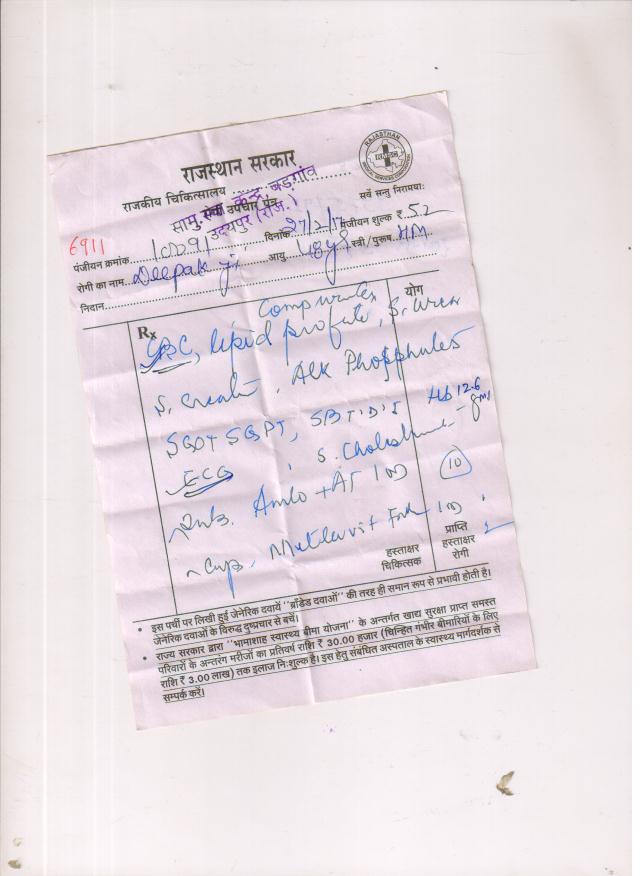 RAJASTHAN
MEDICAL SERVICES CORPORATION
राजस्थान सरकार
राजकीय चिकित्सालय
सर्वे सन्तु निरामयाः
सामु. स्वा. केन्द्र बड़गांव
उपचार पत्र
उदयपुर (राज.)
6911
पंजीयन क्रमांक 10291 दिनांक 27/2/17 पंजीयन शुल्क ₹. 52
रोगी का नाम Deepak ji आयु 48 y स्त्री/पुरूष HM.
निदान
Rx
योग
Complete
CBC, lipid profile, S. Urea
S. Creati. Alk Phosphates
SGOT SGPT, SBT'D'I Hb 12.6 gm
ECG S. Cholesterol
Amlo + AT 1 OD 10
Cap. 1 OD
हस्ताक्षर चिकित्सक
प्राप्ति हस्ताक्षर रोगी
• इस पर्ची पर लिखी हुई जेनेरिक दवायें "ब्राँडेड दवाओं" की तरह ही समान रूप से प्रभावी होती है।
जेनेरिक दवाओं के विरुद्ध दुष्प्रचार से बचें।
• राज्य सरकार द्वारा "भामाशाह स्वास्थ्य बीमा योजना" के अन्तर्गत खाद्य सुरक्षा प्राप्त समस्त
परिवारों के अन्तरंग मरीजों का प्रतिवर्ष राशि ₹ 30.00 हजार (चिन्हित गंभीर बीमारियों के लिए
राशि ₹ 3.00 लाख) तक इलाज निःशुल्क है। इस हेतु संबंधित अस्पताल के स्वास्थ्य मार्गदर्शक से
सम्पर्क करें।